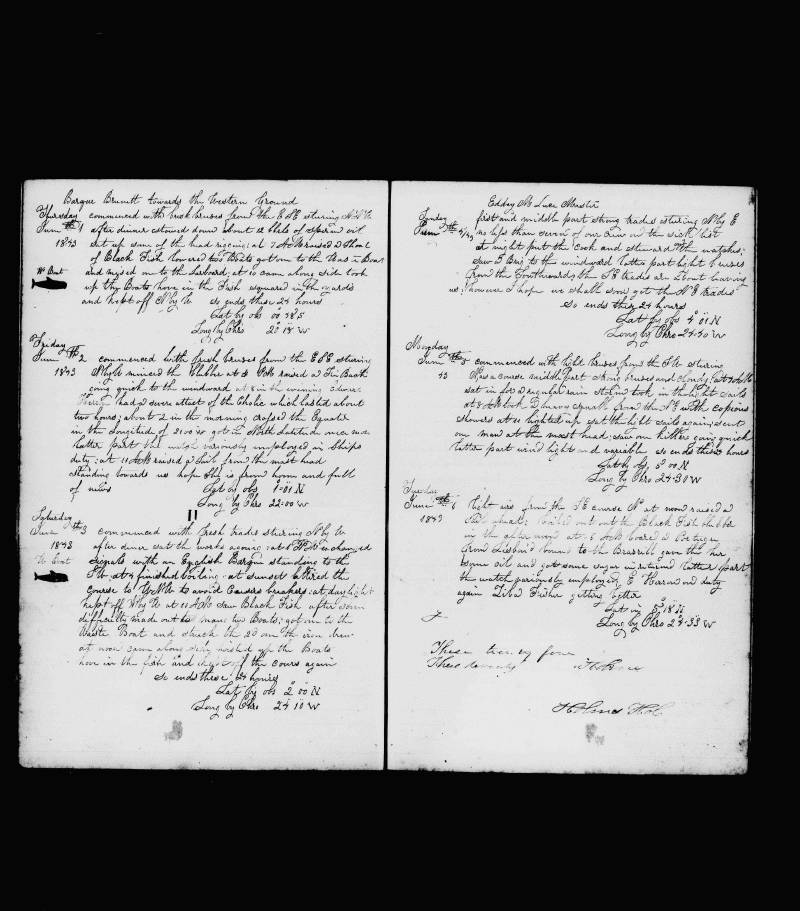 Barque Brunett towards the Western Ground
Thursday commenced with brisk breses from the E S E stering N N W
June th 1 after dinner stowed down about 12 bbls of sperm oil
1843 set up some of the head riging; at 7 AM raised a Shoal
of Black Fish lowered two Boats got on to the Waist Boat
W Boat and missed on to the Larboard; at 10 came along side took
up the Boats hove in the Fish squared in the yards
and kept off N by W so ends these 24 hours
Lat by obs 00°38 S
Long by Chro 20°18 W
Friday
June th 2 commenced with fresh breses from the E S E stering
1843 N by W minced the blubber at 3 PM raised a Fin Back
going quick to the windward at 8 in the evening
had a severe attact of the Cholic which lasted about
two hours; about 2 in the morning crossed the Equator
in the Longitude of 21 00 W got in North Latitude once more
latter part the watch variously imployed in Ships
duty; at 11 AM raised a Sail from the mast head
standing towards us hope she is from home and full
of news Lat by obs 1°01 N
Long by Chro 22=00 W
Saturday
June th 3 commenced with fresh trades stering N by W
1843 after diner set the works agoing; at 3 PM exchanged
W Boat signals with an English Barque standing to the
SW at 4 finished boiling; at sunset altered the
course to to avoid Ceasers breakers; at daylight
kept off N by W at 11 AM saw Black Fish after some
difficulty made out to man two Boats; got on to the
Waiste Boat and struck the 2d one the iron drew
at noon came along side hoisted up the Boats
hove in the fish and kept off the cours again
So ends these 24 hours
Lat by obs 2°00 N
Long by Chro 24 10 W
Edby M Luce Master
Sunday first and middle part strong trades stering N by E
June th 4/43 no less than seven of our Crew on the sick list
at night put the Cook and steward in watches;
saw a Brig to the windward latter part light breses
from the Southward; the SE trades are about leaving
us; however I hope we shall soon get the NE trades
So ends these 24 hours
Lat by obs 4°01 N
Long by Chro 24=30 W
Monday
June th 5 commenced with light breses from the SW stering
43 N as a course middle part strong breses and cloudy; at
set in for a regular rain storm took in the light sails
at 8 AM took a heavy squall from the NE with copious
showers at 10 lighted up set the light sails again; sent
one man at the mast head; saw one killers going quick
latter part wind light and variable so ends these hours
Lat by obs 5°00 N
Long by Chro 24=30 W
Tuesday
June th 6 light airs from the SE course N at noon raised a
1843 boiled out the Black Fish blubber
in the after noon at 6 AM boared a Portugee
from Lisbon bound to the Brassill gave the her
some oil and got some sugar in return latter part
the watch variously employed E Harron on duty
again Liba Fisher getting better
Lat in 5°18 N
Long by Chro 24=33 W
These twenty four
These twenty
Holmes Hol